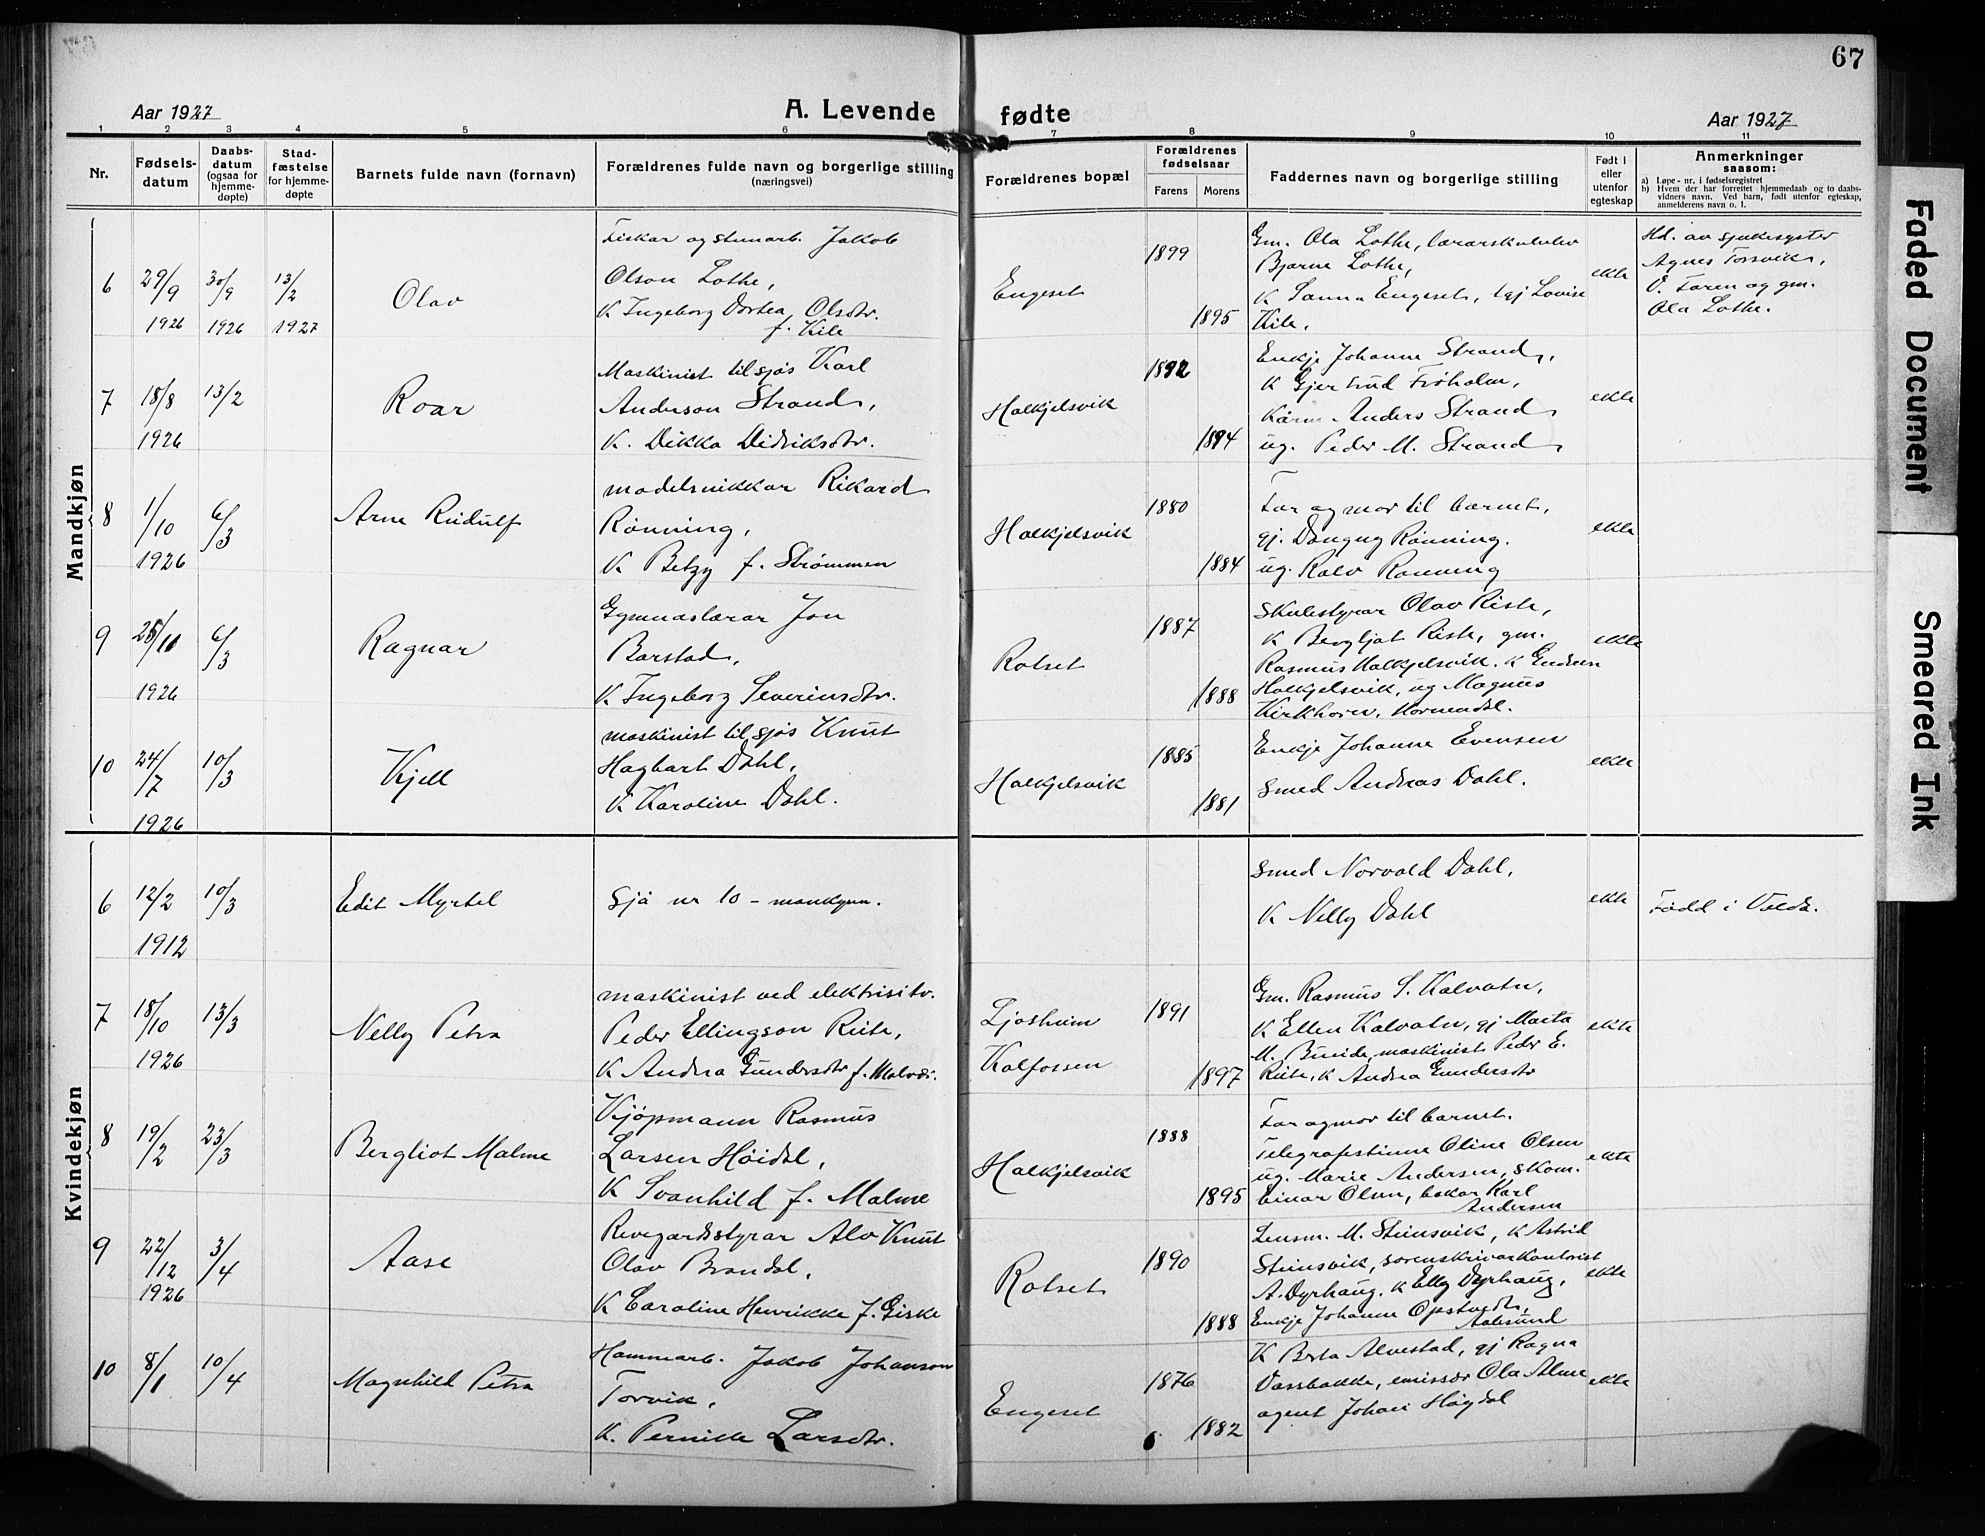 67
Aar 1927
A. Levende
fødte
Aar 1927
1 2 3 4 5 6 7 8 9 10 11
Nr.
Fødsels-
datum
Daabs-
datum
(ogsaa for
hjemme-
døpte)
Stad-
fæstelse
for hjemme-
døpte
Barnets fulde navn (fornavn)
Forældrenes fulde navn og borgerlige stilling
(næringsvei)
Forældrenes bopæl
Forældrenes
fødselsaar
Farens Morens
Faddernes navn og borgerlige stilling
Født i
eller
utenfor
egteskap
Anmerkninger
saasom:
a) Løpe-nr. i fødselsregistret
b) Hvem der har forrettet hjemmedaab og to daabs-
vidners navn. Ved barn, født utenfor egteskap,
anmelderens navn o. l.
Mandkjøn
6
29/9
1926
30/9
1926
13/2
1927
Olav
Fiskar og stenarb. Jakob
Olson Lothe,
K Ingeborg Dortea Olsdtr.
f. Kile
Engeset
1899
1895
Gm. Ola Lothe, lærarskuleelev
Bjarne Lothe,
K Sanna Engeset, tgj Lovise
Kile.
ekte
Hd. av sjukesyster
Agnes Torsvik,
V. Faren og gm.
Ola Lothe.
7
18/8
1926
13/2
Roar
Maskinist tilsjøs Karl
Anderson Strand,
K. Dikka Didriksdtr.
Halkjelsvik
1892
1894
Enkje Johanne Strand,
K Gjertrud Frøholm,
Anders Strand
ug. Peder M. Strand
ekte
8
1/10
1926
6/3
Arne Rudulf
modelsnikkar Rikard
Rønning,
K Betzy f. Strømmen
Halkjelsvik
1880
1884
Far og mor til barnet,
gj. Dangny Rønning.
ug. Ralv Rønning
ekte
9
25/11
1926
6/3
Ragnar
Gymnaslærar Jon
Barstad,
K Ingeborg Severinsdtr.
Rotset
1887
1888
Skulestyrar Olav Riste,
K Bergljot Riste, gm.
Rasmus Halkjelsvik. K Gudrun
Halkjelsvik, ug Magnus
Kirkhorn, Hornindal.
ekte
10
24/7
1926
10/3
Kjell
maskinist til sjøs Knut
Hagbart Dahl,
K Karoline Dahl.
Halkjelsvik
1885
1881
Enkje Johanne Evensen
Smed Andreas Dahl.
ekte
Kvindekjøn
6
12/2
1912
10/3
Edit Myrtel
Sjå nr 10 - mankynn.
Smed Norvald Dahl,
K Nelly Dahl
ekte
Fødd i Volda.
7
18/10
1926
13/3
Nelly Petra
maskinist ved elektrisitv.
Peder Ellingson Riite,
K Andrea Gundersdtr f. Malvær.
Ljosheim
Kalfossen
1891
1897
Gm. Rasmus S. Kalvatn,
K Ellen Kalvatn, gj Marta
M. Bueide, maskinist Peder E.
Riite, K Andrea Gundersdtr
ekte
8
19/2
23/3
Bergliot Malme
Kjøpmann Rasmus
Larsen Høidal,
K Svanhild f. Malme
Halkjelsvik
1888
1895
Far og mor til barnet.
Telegrafistinne Oline Olsen
ug. Marie Andersen, Skom.
Einar Olsen, bakar Karl
Andersen
ekte
9
22/12
1926
3/4
Aase
Revegardsstyrar Alv Knut
Olav Brandal,
K Caroline Henrikke f. Giske
Rotset
1890
1888
Lensm. M. Steinsvik, K Astrid
Steinsvik, sorenskrivarkontorist
A. Dyrhaug, K Elly Dyrhaug,
Enkje Johanne Opstvedt,
Aalesund
ekte
10
8/1
10/4
Magnhild Petra
Hammarb. Jakob Johanson
Torvik,
K. Pernille Larsdtr.
Engeset
1876
1882
K Berta Alvestad, gj Ragna
Vassbakke, emissær Ola Alme
agent Johan Høydal
ekte
Faded Document
Smeared Ink